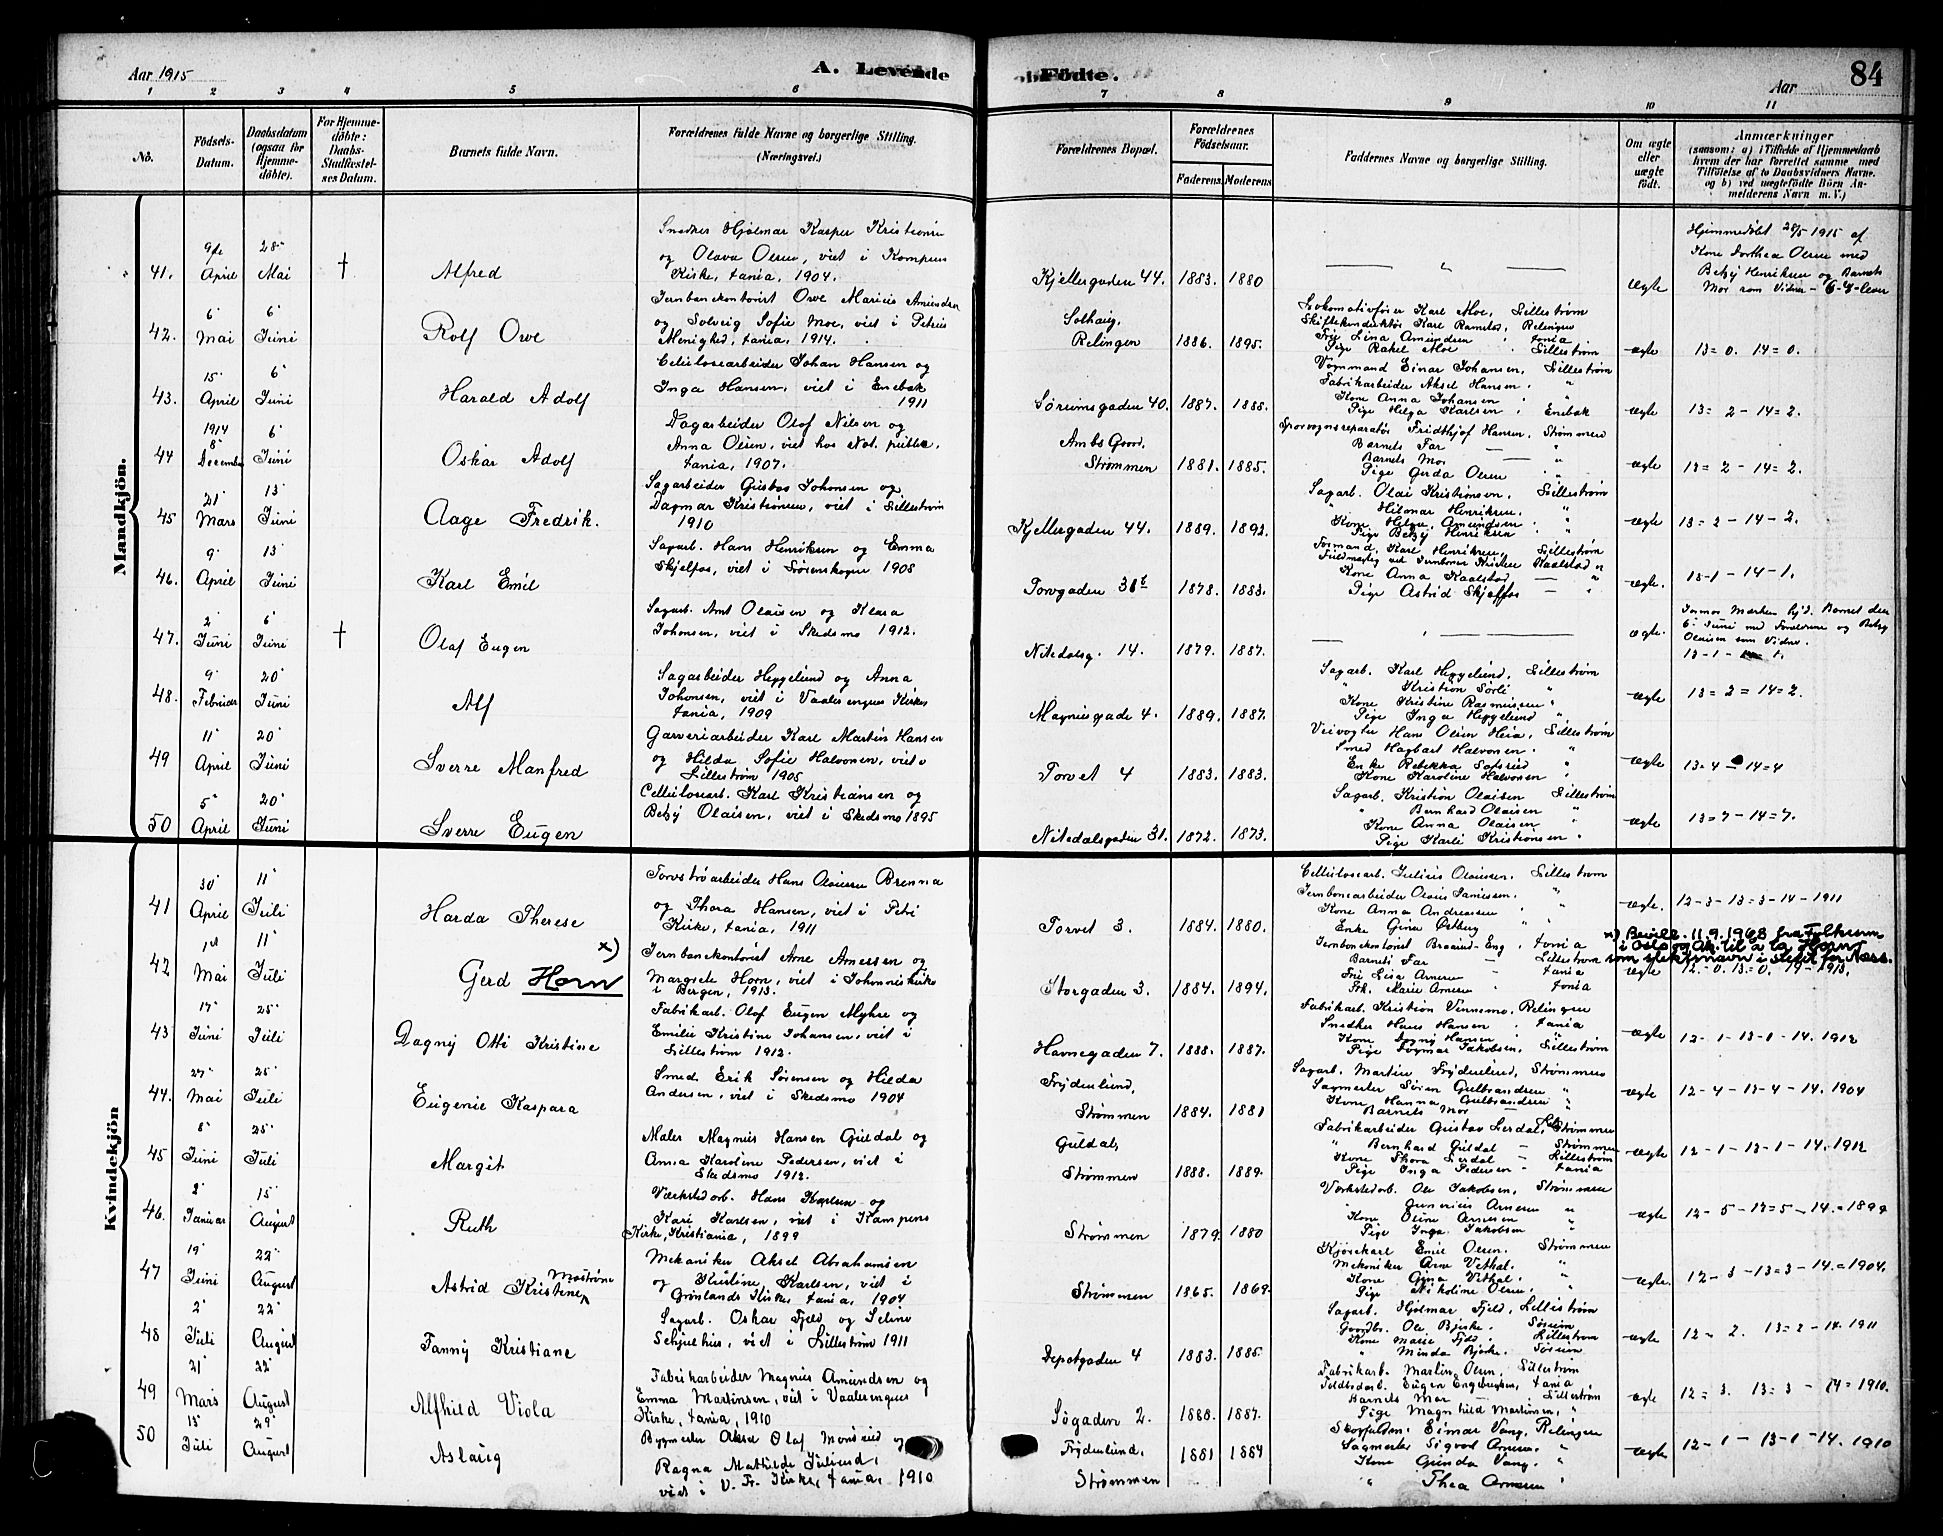 Aar 1915
A. Levende
Födte.
Aar
84
1 2 3 4 5 6 7 8 9 10 11
No.
Födsels-
Datum.
Daabsdatum
(ogsaa for
Hjemme-
döbte).
For Hjemme-
döbte:
Daabs-
Stadfæstel-
ses Datum.
Barnets fulde Navn.
Forældrenes fulde Navne og borgerlige Stilling.
(Næringsvei.)
Forældrenes Bopæl.
Forældrenes
Födselsaar.
Faderens
Moderens
Faddernes Navne og borgerlige Stilling.
Om ægte
eller
uægte
födt.
Anmærkninger
(saasom: a) i Tilfælde af Hjemmedaab
hvem der har forrettet samme, med
Tilföielse af to Daabsvidners Navne.
og b) ved uægtefödte Börn An-
melderens Navn m. V.)
Mandkjön.
41.
9de
April
28'
Mai
†
Alfred
Snedker Hjalmar Kasper Kristiansen
og Olava Olsen, viet i Kampens
Kirke, tania, 1904.
Kjellergaden 44. 1883. 1880
ægte
Hjemmedøbt 28/5 1915 af
Kone Dorthea Olsen med
Betzy Henriksen og Barnets
Mor som Vidner
42.
6'
Mai
6'
Juni
Rolf Owe
Jernbanekontorist Owe Marius Amundsen
og Solveig Sofie Moe, viet i Petrus
Menighed, tania, 1914.
Solhaug,
Relingen 1886. 1895.
Lokomotivfører Karl Moe, Lillestrøm
Skiftekonduktør Karl Ramstad, Relingen
Frk. Lina Amundsen tania
Pige Rakel Moe Lillestrøm
ægte
13=0. 14=0.
43.
15'
April
6'
Juni
Harald Adolf
Cellulosearbeider Johan Hansen og
Inga Hansen, viet i Enebak
1911
Sørumsgaden 40. 1887. 1888.
Vognmand Einar Johansen, Lillestrøm
Fabrikarbeider Aksel Hansen "
Kone Anna Johansen "
Pige Helga Karlsen, Enebak
ægte
13=2-14=2.
44
1914
8'
December
6'
Juni
Oskar Adolf
Dagarbeider Olof Nilsen og
Anna Olsen, viet hos Not. publ.,
tania, 1907.
Ambs Gaard,
Strømmen 1881. 1885.
Sporvognsreparatør Fridthjof Hansen, Strømmen
Barnets Far "
Barnets Mor "
Pige Gerda Olsen "
ægte
13=2-14=2.
45
21'
Mars
13'
Juni
Aage Fredrik.
Sagarbeider Gustav Johansen og
Dagmar Kristiansen, viet i Lillestrøm
1910
Kjellergaden 44. 1889. 1892.
Sagarb. Olai Kristiansen, Lillestrøm
" Hilmar Henriksen "
Kone Helga Amundsen "
Pige Betzy Henriksen "
ægte
13=2-14-2.
46.
9'
April
13'
Juni
Karl Emil
Sagarb. Hans Henriksen og Emma
Skjelfos, viet i Sørenskogen 1908
Torvgaden 31 b 1878. 1883.
Formand, Karl Henriksen, Lillestrøm
Kone Anna Kaalstad — "
Pige Astrid Skjelfos — "
ægte.
13-1-14-1.
47.
2'
Juni
6'
Juni
†
Olaf Eugen
Sagarb. Arnt Olaisen og Klara
Johansen, viet i Skedsmo 1912.
Nitedalsg. 14. 1879. 1887.
ægte.
6' Juni med Forældrene og Betzy
Olaisen som Vidner.
48.
9'
Februar
20'
Juni
Alf
Sagarbeider Heggelund og Anna
Johansen, viet i Vaalerengens Kirke
tania, 1909
Magnusgade 4. 1889. 1887.
Sagarb. Karl Heggelund, Lillestrøm
" Kristian Sørli "
Kone Kristine Rasmussen "
Pige Inga Heggelund "
ægte
13=2=14=2.
49
11'
April
20'
Juni
Sverre Manfred
Garveriarbeider Karl Martin Hansen
og Hilda Sofie Halvorsen, viet i
Lillestrøm 1905
Torvet 4 1883. 1883.
Veivogter Hans Olsen Heia, Lillestrøm
Smed Hagbart Halvorsen "
Enke Rebekka "
Kone Karoline Halvorsen "
ægte
13=4=14=4
50
5'
April
20'
Juni
Sverre Eugen
Cellulosearb. Karl Kristiansen og
Betzy Olaisen, viet i Skedsmo 1895
Nitedalsgaden 31. 1872. 1873.
Sagarb. Kristian Olaisen Lillestrøm
" Bernhard Olaisen "
Kone Anna Olaisen "
Pige Karli Kristiansen "
ægte
13=7-14=7.
Kvindekjön
41
30'
April
11'
Juli
Harda Therese
Torvstrøarbeider Hans Olaisen Brenna
og Thora Hansen, viet i Petri
Kirke, tania, 1911
Torvet 3. 1884. 1880.
Cellulosearb. Julius Olaussen, Lillestrøm
Jernbanearbeider Olaus Janissen, "
Kone Anna Andreassen "
Enke Gina Østberg "
ægte.
12-3-13=3-14-1911
42
1ste
Mai
11'
Juli
Gerd Horn x)
Jernbanekontorist Arne Arnessen og
Margrete Horn, viet i Johanneskirke
i Bergen, 1913.
Storgaden 3. 1884. 1894.
Jernbanekontorist Braand-Eng, tania
Barnets Far — Lillestrøm
Frk. Elsa Arnesen tania
Frk. Marie Arnesen " tania
ægte
x) Bevill. 11.9.1968 fra Folkereg.
i Oslo og Ak. til å ta Horn
som slektsnavn i stedet for Næss.
12.-0. 13=0. 14-1913.
43
17'
Juni
25'
Juli
Dagny Otti Kristine
Fabrikarb. Olof Eugen Myhre og
Emilie Kristine Johansen, viet i
Lillestrøm 1912.
Havnegaden 7. 1888. 1887.
Fabrikarb. Kristian Vinnsmo. Relingen
Snedker Hans Hansen tania
Kone Dagny Hansen "
Pige Dagmar Jakobsen, Lillestrøm
ægte
12-1-13-1-14. 1912
44.
27'
Mai
25'
Juli
Eugenie Kaspara
Smed, Erik Sørensen og Hilda
Andersen, viet i Skedsmo 1904
Frydenlund,
Strømmen 1884. 1881
Sagarb. Martin Frydenlund, Strømmen
Sagmester Søren Gulbrandsen "
Kone Hanna Gulbrandsen "
Barnets Mor "
ægte
12-4-13-4-14. 1904
45
8'
Juni
25'
Juli
Margit
Maler Magnus Hansen Guldal og
Anna Karoline Pedersen, viet i
Skedsmo 1912.
Guldal,
Strømmen 1888. 1889.
Fabrikarbeider Gustav Lerdal, Strømmen
" Bernhard Guldal — Strømmen
Kone Thora Lerdal — Lillestrøm
Pige Inga Pedersen - tania
ægte
12-1-13-1-14. 1912
46.
2'
Januar
15'
August
Ruth
Værkstedarb. Hans Karlsen og
Kari Karlsen, viet i Kampens
Kirke, Kristiania, 1899
Strømmen 1879. 1880
Værkstedarb. Ole Jakobsen, Strømmen
" Gunerius Arnesen "
Kone Oline Arnesen "
Pige Inga Jakobsen "
ægte
12-5-13=5-14.=1899
47
19'
Juni
22'
August
Astrid Kristine Mostrøne
Mekaniker Aksel Abrahamsen
og Kristine Karlsen, viet i
Grønlands Kirke, tania, 1904
Strømmen 1865. 1869.
Kjørekarl Emil Olsen. Strømmen
Mekaniker Arne Vethal. "
Kone Gina Vethal. "
Pige Nikoline Olsen, "
ægte.
12-3-13=3-14.=1904.
48
2'
Juli
22'
August
Fanny Kristiane
Sagarb. Oskar Fjeld og Seline
Schjuehus, viet i Lillestrøm 1911
Depotgaden 4 1883. 1885.
Sagarb. Hjalmar Fjeld, Lillestrøm
Gaardbr. Ole Bjerke. Sørum
Kone Marie Fjeld. Lillestrøm
" Minda Bjerke. Sørum
ægte
12-2. 13=2-14-1911
49
21'
Mars
22'
August
Alfhild Viola
Fabrikarbeider Magnus Amundsen og
Emma Martinsen, viet i Vaalerengens
Kirke, tania, 1910
Søgaden 2. 1888. 1887.
Fabrikarb. Martin Olsen, Lillestrøm
Eugen Engebretsen, tania
Barnets Mor — Lillestrøm
Pige Magnhild Martinsen, "
ægte
12=3. 13=3-14=1910.
50
15'
Juli
29'
August
Aslaug
Bygmester Aksel Olaf Monsrud og
Ragna Mathilde Julsrud,
viet i V. Fr. Kirke, tania, 1910
Frydenlund,
Strømmen 1881 1884
Einar Vang, Relingen
Sagmester Sigvad Arnesen, "
Kone Gunda Vang, "
" Thea Arnesen "
ægte
12-1-13-1-14. 1910